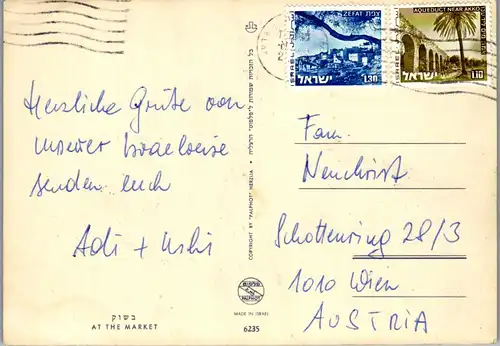 Herzliche Grüße von
unserer Israelreise
senden euch
Adi + Uschi
בשוק
AT THE MARKET
כל הזכויות שמורות ל"פלפוט" הרצליה
COPYRIGHT BY "PALPHOT" HERZLIA
PALPHOT
MADE IN ISRAEL
6235
צפת ZEFAT
ISRAEL
ישראל
1.30
AQUEDUCT NEAR AKKO
ISRAEL
ישראל
1.10
Fam.
Neuchrist
Schottenring 28/3
1010 Wien
AUSTRIA